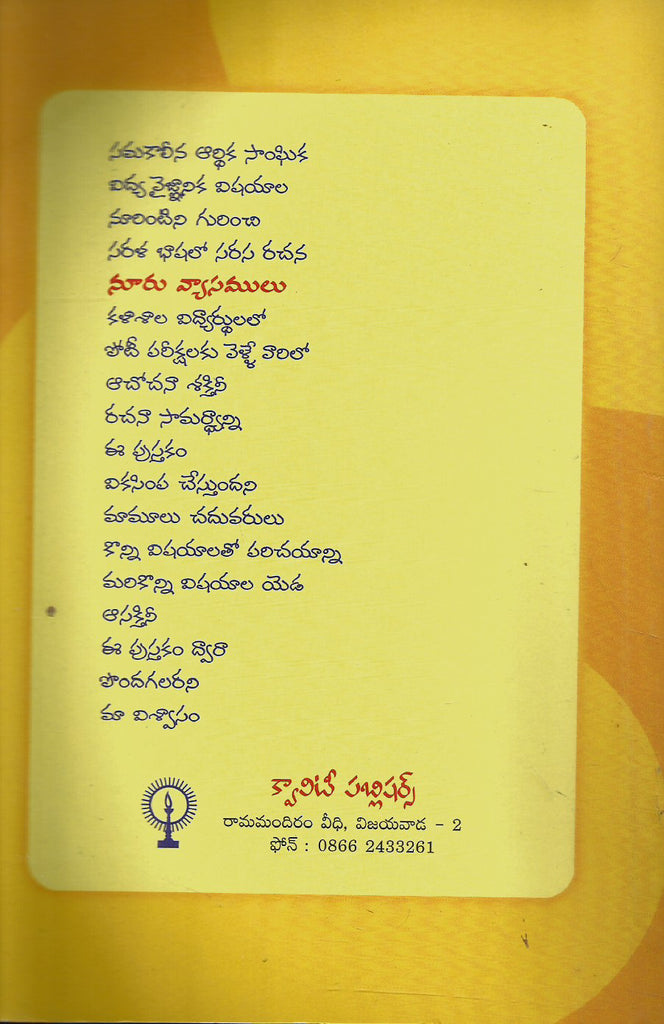 సమకాలీన ఆర్థిక సాంఘిక
విద్య వైజ్ఞానిక విషయాల
నూరింటిని గురించి
సరళ భాషలో సరస రచన
నూరు వ్యాసములు
కళాశాల విద్యార్థులలో
పోటీ పరీక్షలకు వెళ్ళే వారిలో
ఆచోచనా శక్తినీ
రచనా సామర్థ్యాన్ని
ఈ పుస్తకం
వికసింప చేస్తుందని
మామూలు చదువరులు
కొన్ని విషయాలతో పరిచయాన్ని
మరికొన్ని విషయాల యెడ
ఆసక్తినీ
ఈ పుస్తకం ద్వారా
పొందగలరని
మా విశ్వాసం
క్వాలిటీ పబ్లిషర్స్
రామమందిరం వీధి, విజయవాడ - 2
ఫోన్ : 0866 2433261